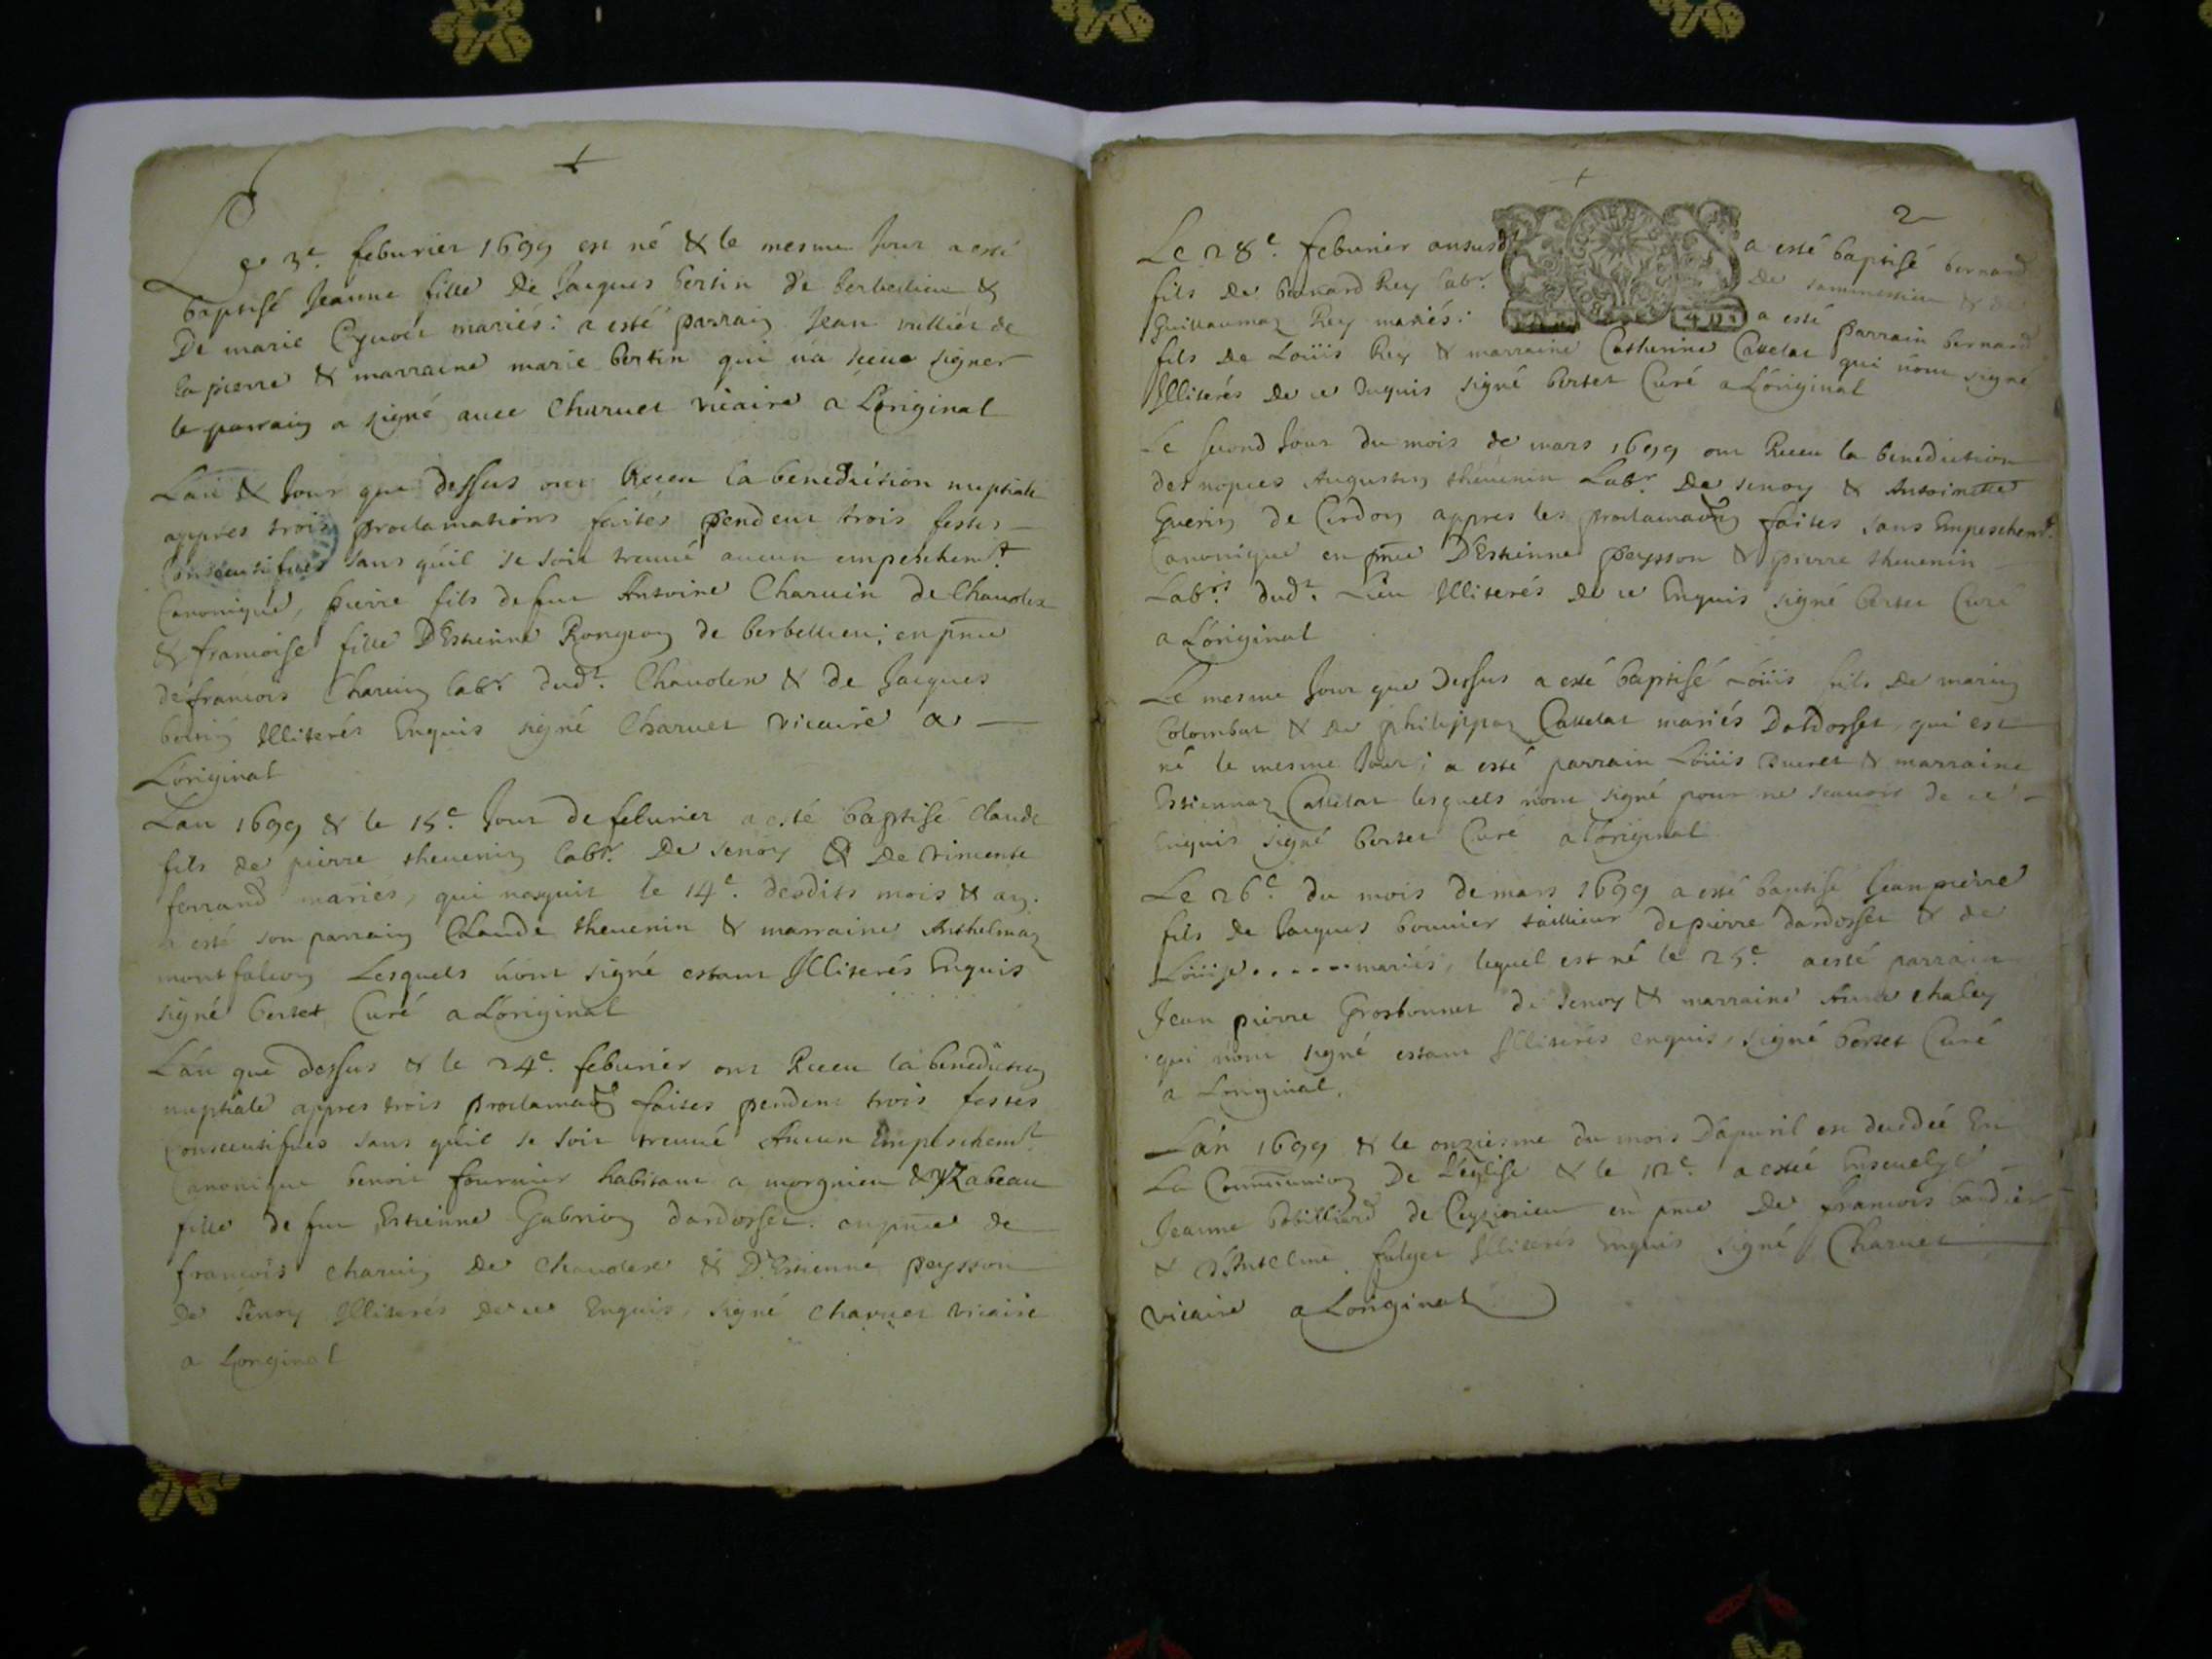 Le 3e. feburier 1699 est né & le mesme Jour a esté
baptisé Jeanne fille De Jacques bertin de berbellieu &
De marie mariés: a esté parrain Jean vullier de
la pierre & marraine marie bertin qui na sceue signer
le parrain a signé avec Charuet vicaire a Loriginal
Lan & Jour que dessus ont Receu la benediction nuptiale
appres trois proclamations faites pendent trois festes
consecutifues sans quil se soit treuué aucun empeschemt
Canonique, pierre fils de feu Antoine Charuin de Chauolex
& francoise fille DEstienne Rongeon de berbellieu: en pnce
de francois Charuin labr. dudt. Chauolex & de Jacques
bertin Illiterés Enquis signé Charuet vicaire a
Loriginal
Lan 1699 & le 15e. Jour de feburier a esté baptisé Claude
fils de pierre theuenin labr. De senoy & De vincente
ferrand mariés, qui nasquit le 14e. desdits mois & an.
a esté son parrain CLaude theuenin & marraine Anthelmaz
montfalcon Lesquels nont signé estant Illiterés Enquis
signé bertet Curé a Loriginal
Lan que dessus & le 24e. feburier ont Receu la benediction
nuptiale appres trois proclamaon faites pendent trois festes
consecutifues sans quil se soit treuué Aucun Empeschemt
Canonique benoit fournier habitant a morgnieu & yZabeau
fille de feu Estienne Gabrion dardosset. en pnce de
francois charuin De Chauolex & DEstienne peysson
De senoy Illiterés de ce Enquis, signé charuet vicaire
a Loriginal
2
Le 28e. feburier ansusdt a esté baptisé bernard
fils de bernard Rey labr. De & de
Guillaumaz Rey mariés: a esté parrain bernard
fils de Loüis Rey & marraine Catherine Cattelat qui nont signé
Illiterés De ce Inquis signé bertet Curé a Loriginal
Le second Jour du mois de mars 1699 ont Receu la benediction
des nopces Augustin theuenin Labr. De senoy & Antoinette
Guerin de Cerdon appres les proclamaon faites sans Empeschemt.
Canonique en pnce DEstienne peysson & pierre theuenin
Labrs. dudt. Lieu Illiterés de ce Enquis signé bertet Curé
a Loriginal
Le mesme Jour que dessus a esté baptisé Loüis fils de marin
Colombat & de philippaz Cattelat mariés Dardosset, qui est
né le mesme Jour; a esté parrain Loüis Ducret & marraine
Estiennaz Cattelat lesquels nont signé pour ne scauoir de ce
enquis signé bertet Curé a Loriginal
Le 26e. du mois de mars 1699 a esté baptisé Jean pierre
fils de Jacques bouuier taillieur de pierre dardosset & de
Loüise ..... mariés, lequel est né le 25e. a esté parrain
Jean pierre Grosbonnet de senoy & marraine Anne chaley
qui nont signé estant Illiterés enquis, signé bertet Curé
a Loriginal.
Lan 1699 & le onziesme du mois Dapuril est decedée En
La Communion De Leglise & le 12e. a estée Enseuelye
Jeanne bobilliard de Ceyzerieu en pnce De francois baudier
& DAntelme Illiterés Enquis signé Charuet
vicaire a Loriginal